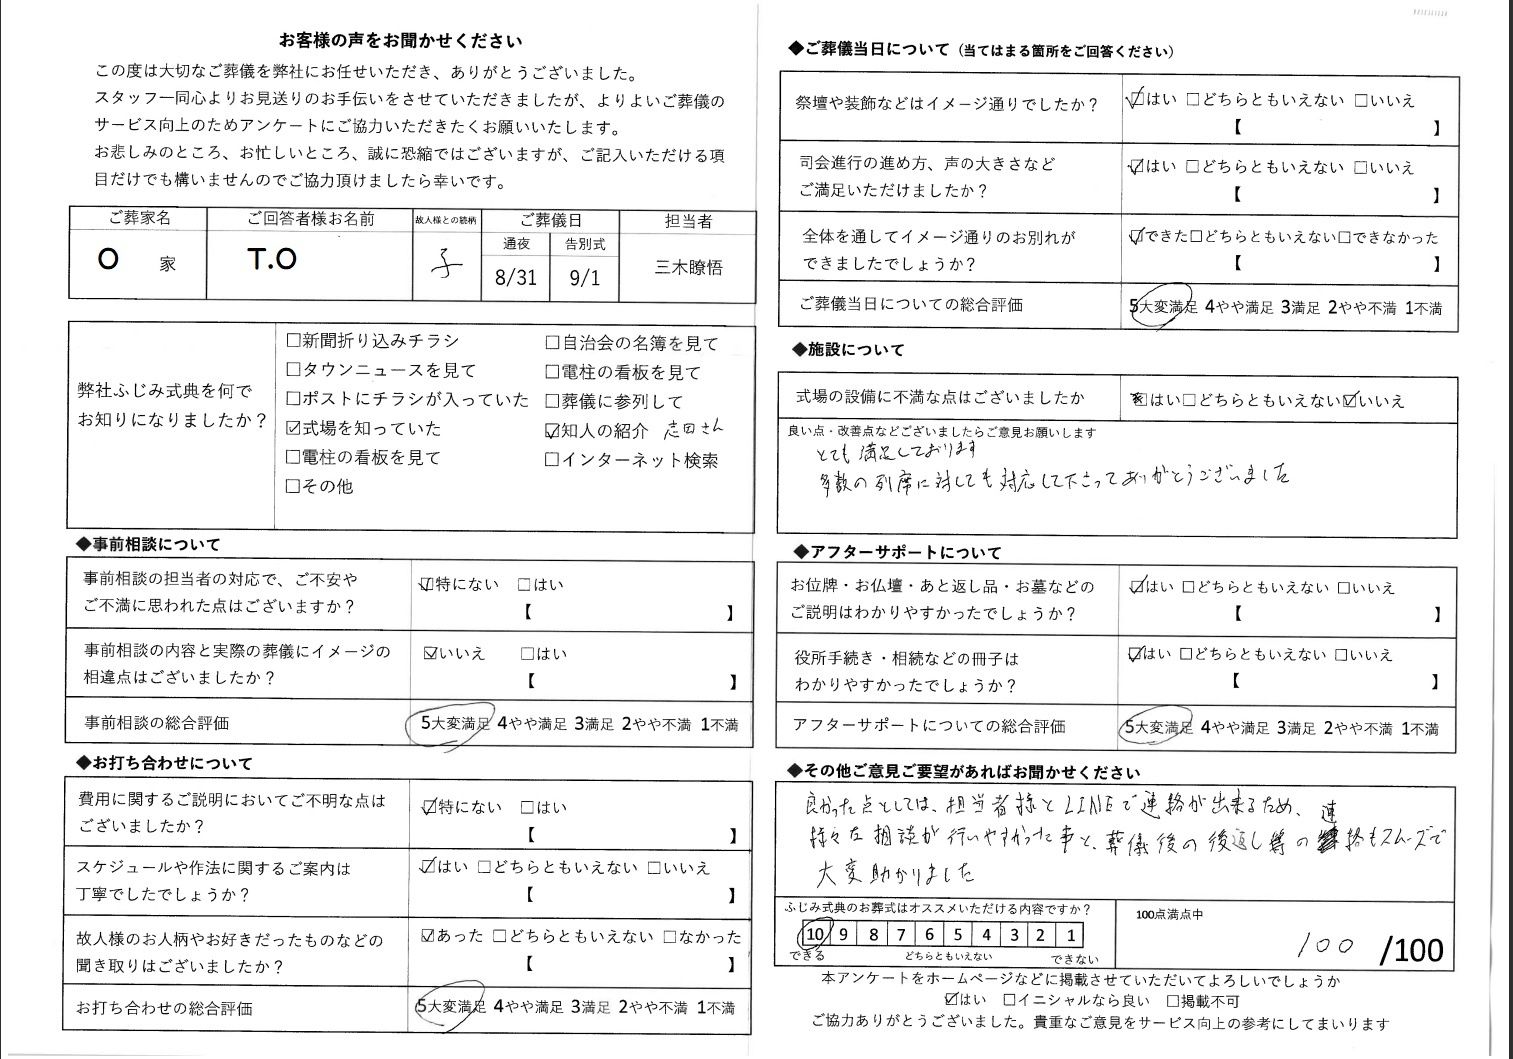 お客様の声をお聞かせください
この度は大切なご葬儀を弊社にお任せいただき、ありがとうございました。
スタッフ一同心よりお見送りのお手伝いをさせていただきましたが、よりよいご葬儀の
サービス向上のためアンケートにご協力いただきたくお願いいたします。
お悲しみのところ、お忙しいところ、誠に恐縮ではございますが、ご記入いただける項
目だけでも構いませんのでご協力頂けましたら幸いです。
ご葬家名 ご回答者様お名前 故人様との続柄 ご葬儀日 担当者
通夜 告別式
O 家 T.O 子 8/31 9/1 三木瞭悟
弊社ふじみ式典を何で
お知りになりましたか？
□新聞折り込みチラシ □自治会の名簿を見て
□タウンニュースを見て □電柱の看板を見て
□ポストにチラシが入っていた □葬儀に参列して
☑式場を知っていた ☑知人の紹介 志田さん
□電柱の看板を見て □インターネット検索
□その他
◆事前相談について
事前相談の担当者の対応で、ご不安や
ご不満に思われた点はございますか？
☑特にない □はい
【 】
事前相談の内容と実際の葬儀にイメージの
相違点はございましたか？
☑いいえ □はい
【 】
事前相談の総合評価 5大変満足 4やや満足 3満足 2やや不満 1不満
◆お打ち合わせについて
費用に関するご説明においてご不明な点は
ございましたか？
☑特にない □はい
【 】
スケジュールや作法に関するご案内は
丁寧でしたでしょうか？
☑はい □どちらともいえない □いいえ
【 】
故人様のお人柄やお好きだったものなどの
聞き取りはございましたか？
☑あった □どちらともいえない □なかった
【 】
お打ち合わせの総合評価 5大変満足 4やや満足 3満足 2やや不満 1不満
◆ご葬儀当日について（当てはまる箇所をご回答ください）
祭壇や装飾などはイメージ通りでしたか？ ☑はい □どちらともいえない □いいえ
【 】
司会進行の進め方、声の大きさなど
ご満足いただけましたか？
☑はい □どちらともいえない □いいえ
【 】
全体を通してイメージ通りのお別れが
できましたでしょうか？
☑できた□どちらともいえない□できなかった
【 】
ご葬儀当日についての総合評価 5大変満足 4やや満足 3満足 2やや不満 1不満
◆施設について
式場の設備に不満な点はございましたか はい□どちらともいえない☑いいえ
良い点・改善点などございましたらご意見お願いします
とても満足しております
多数の列席に対しても対応して下さってありがとうございました
◆アフターサポートについて
お位牌・お仏壇・あと返し品・お墓などの
ご説明はわかりやすかったでしょうか？
☑はい □どちらともいえない □いいえ
【 】
役所手続き・相続などの冊子は
わかりやすかったでしょうか？
☑はい □どちらともいえない □いいえ
【 】
アフターサポートについての総合評価 5大変満足 4やや満足 3満足 2やや不満 1不満
◆その他ご意見ご要望があればお聞かせください
良かった点としては、担当者様とLINEで連絡が出来るため、
様々な相談が行いやすかった事と、葬儀後の後返し等の連絡もスムーズで
大変助かりました
ふじみ式典のお葬式はオススメいただける内容ですか？
10 9 8 7 6 5 4 3 2 1
できる どちらともいえない できない
100点満点中
100 /100
本アンケートをホームページなどに掲載させていただいてよろしいでしょうか
☑はい □イニシャルなら良い □掲載不可
ご協力ありがとうございました。貴重なご意見をサービス向上の参考にしてまいります